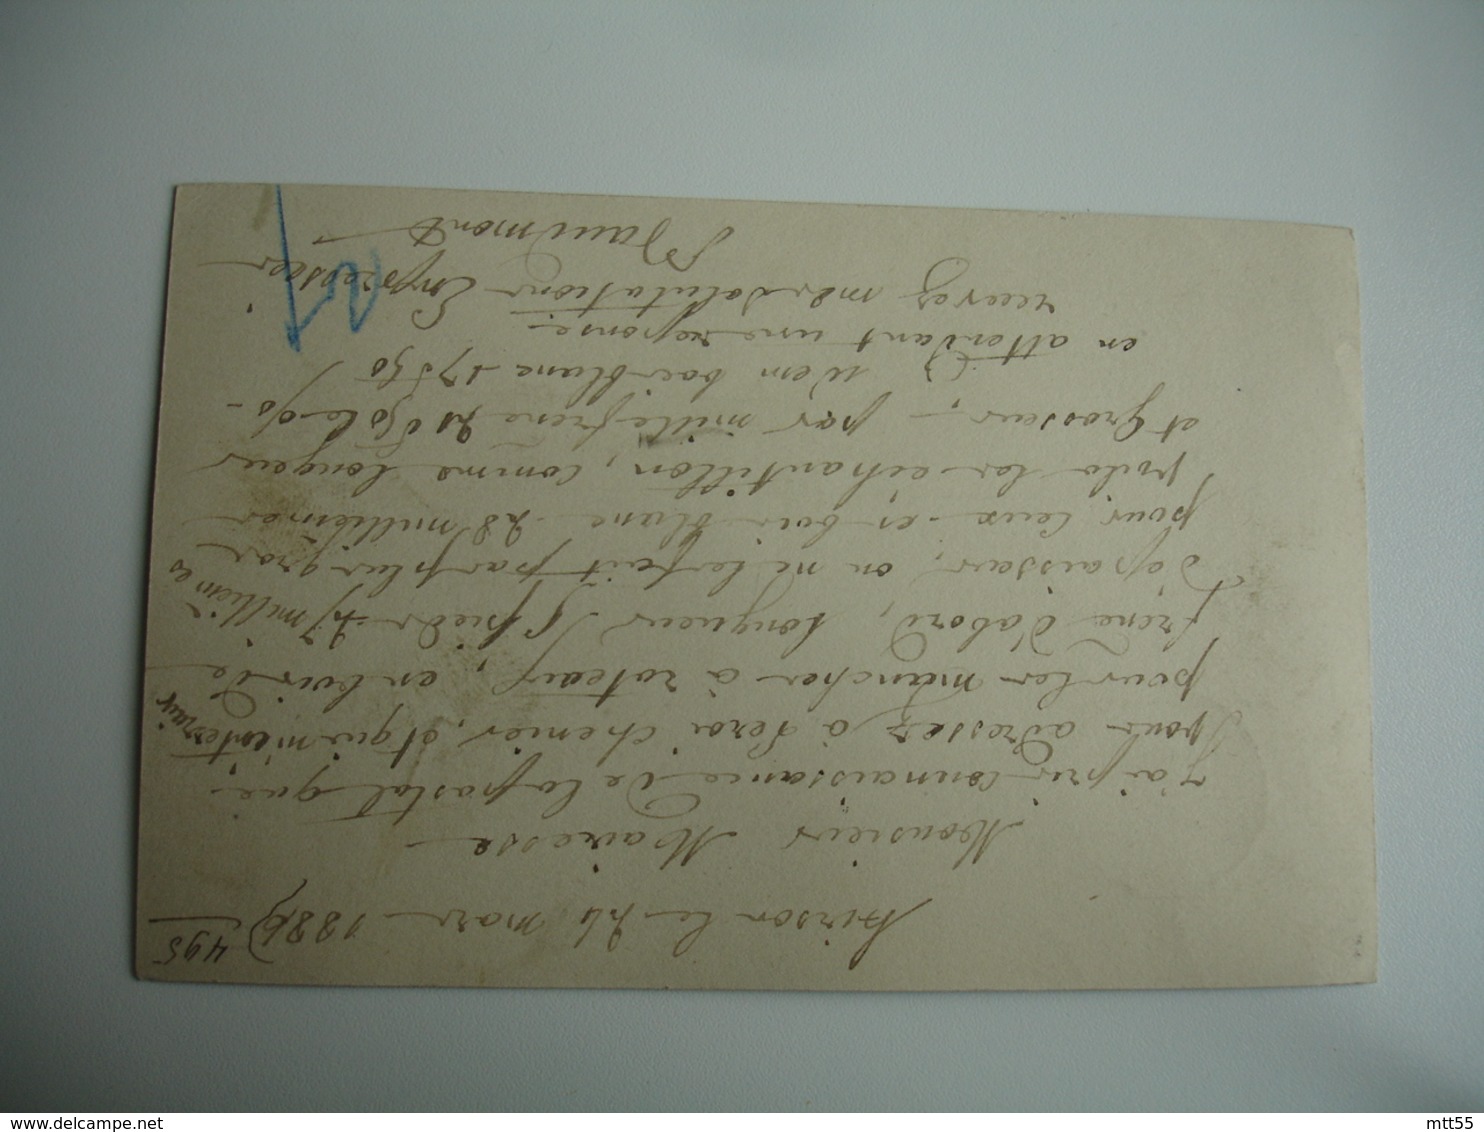 495
hirson le 24 mars 188
Monsieur Mairesse
J'ai pris connaissance de la postal que
vous adressez à Leroi chenier, et qui m'interesse
pour les manches à rateaux, en bois de
frene d'abord, longueur 5 pieds 27 millièmes
d'epaisseur, on ne les fait pas plus gros
pour ceux en bois blanc 28 milliemes
poids les echantillon, comme longeur
et grosseur, par mille frene 21 f 50 le %
idem bois blanc 17 f 50
en attendant une reponse
recevez mes salutations Empressées
Baudmont
21
delcampe.net
mtt55